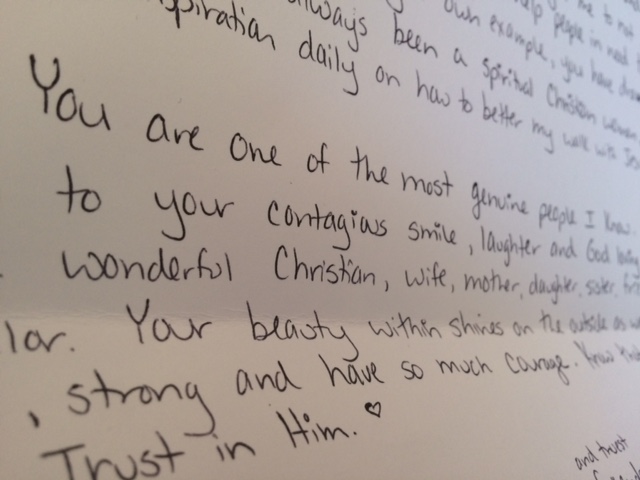 me to not
own example, you have
help people in need
always been a spiritual Christian woman,
inspiration daily on how to better my walk with
You are one of the most genuine people I know.
to your contagious smile, laughter and God
wonderful Christian, wife, mother, daughter, sister,
lor. Your beauty within shines on the outside as
, strong and have so much courage. Know
Trust in Him. ♡
and trust